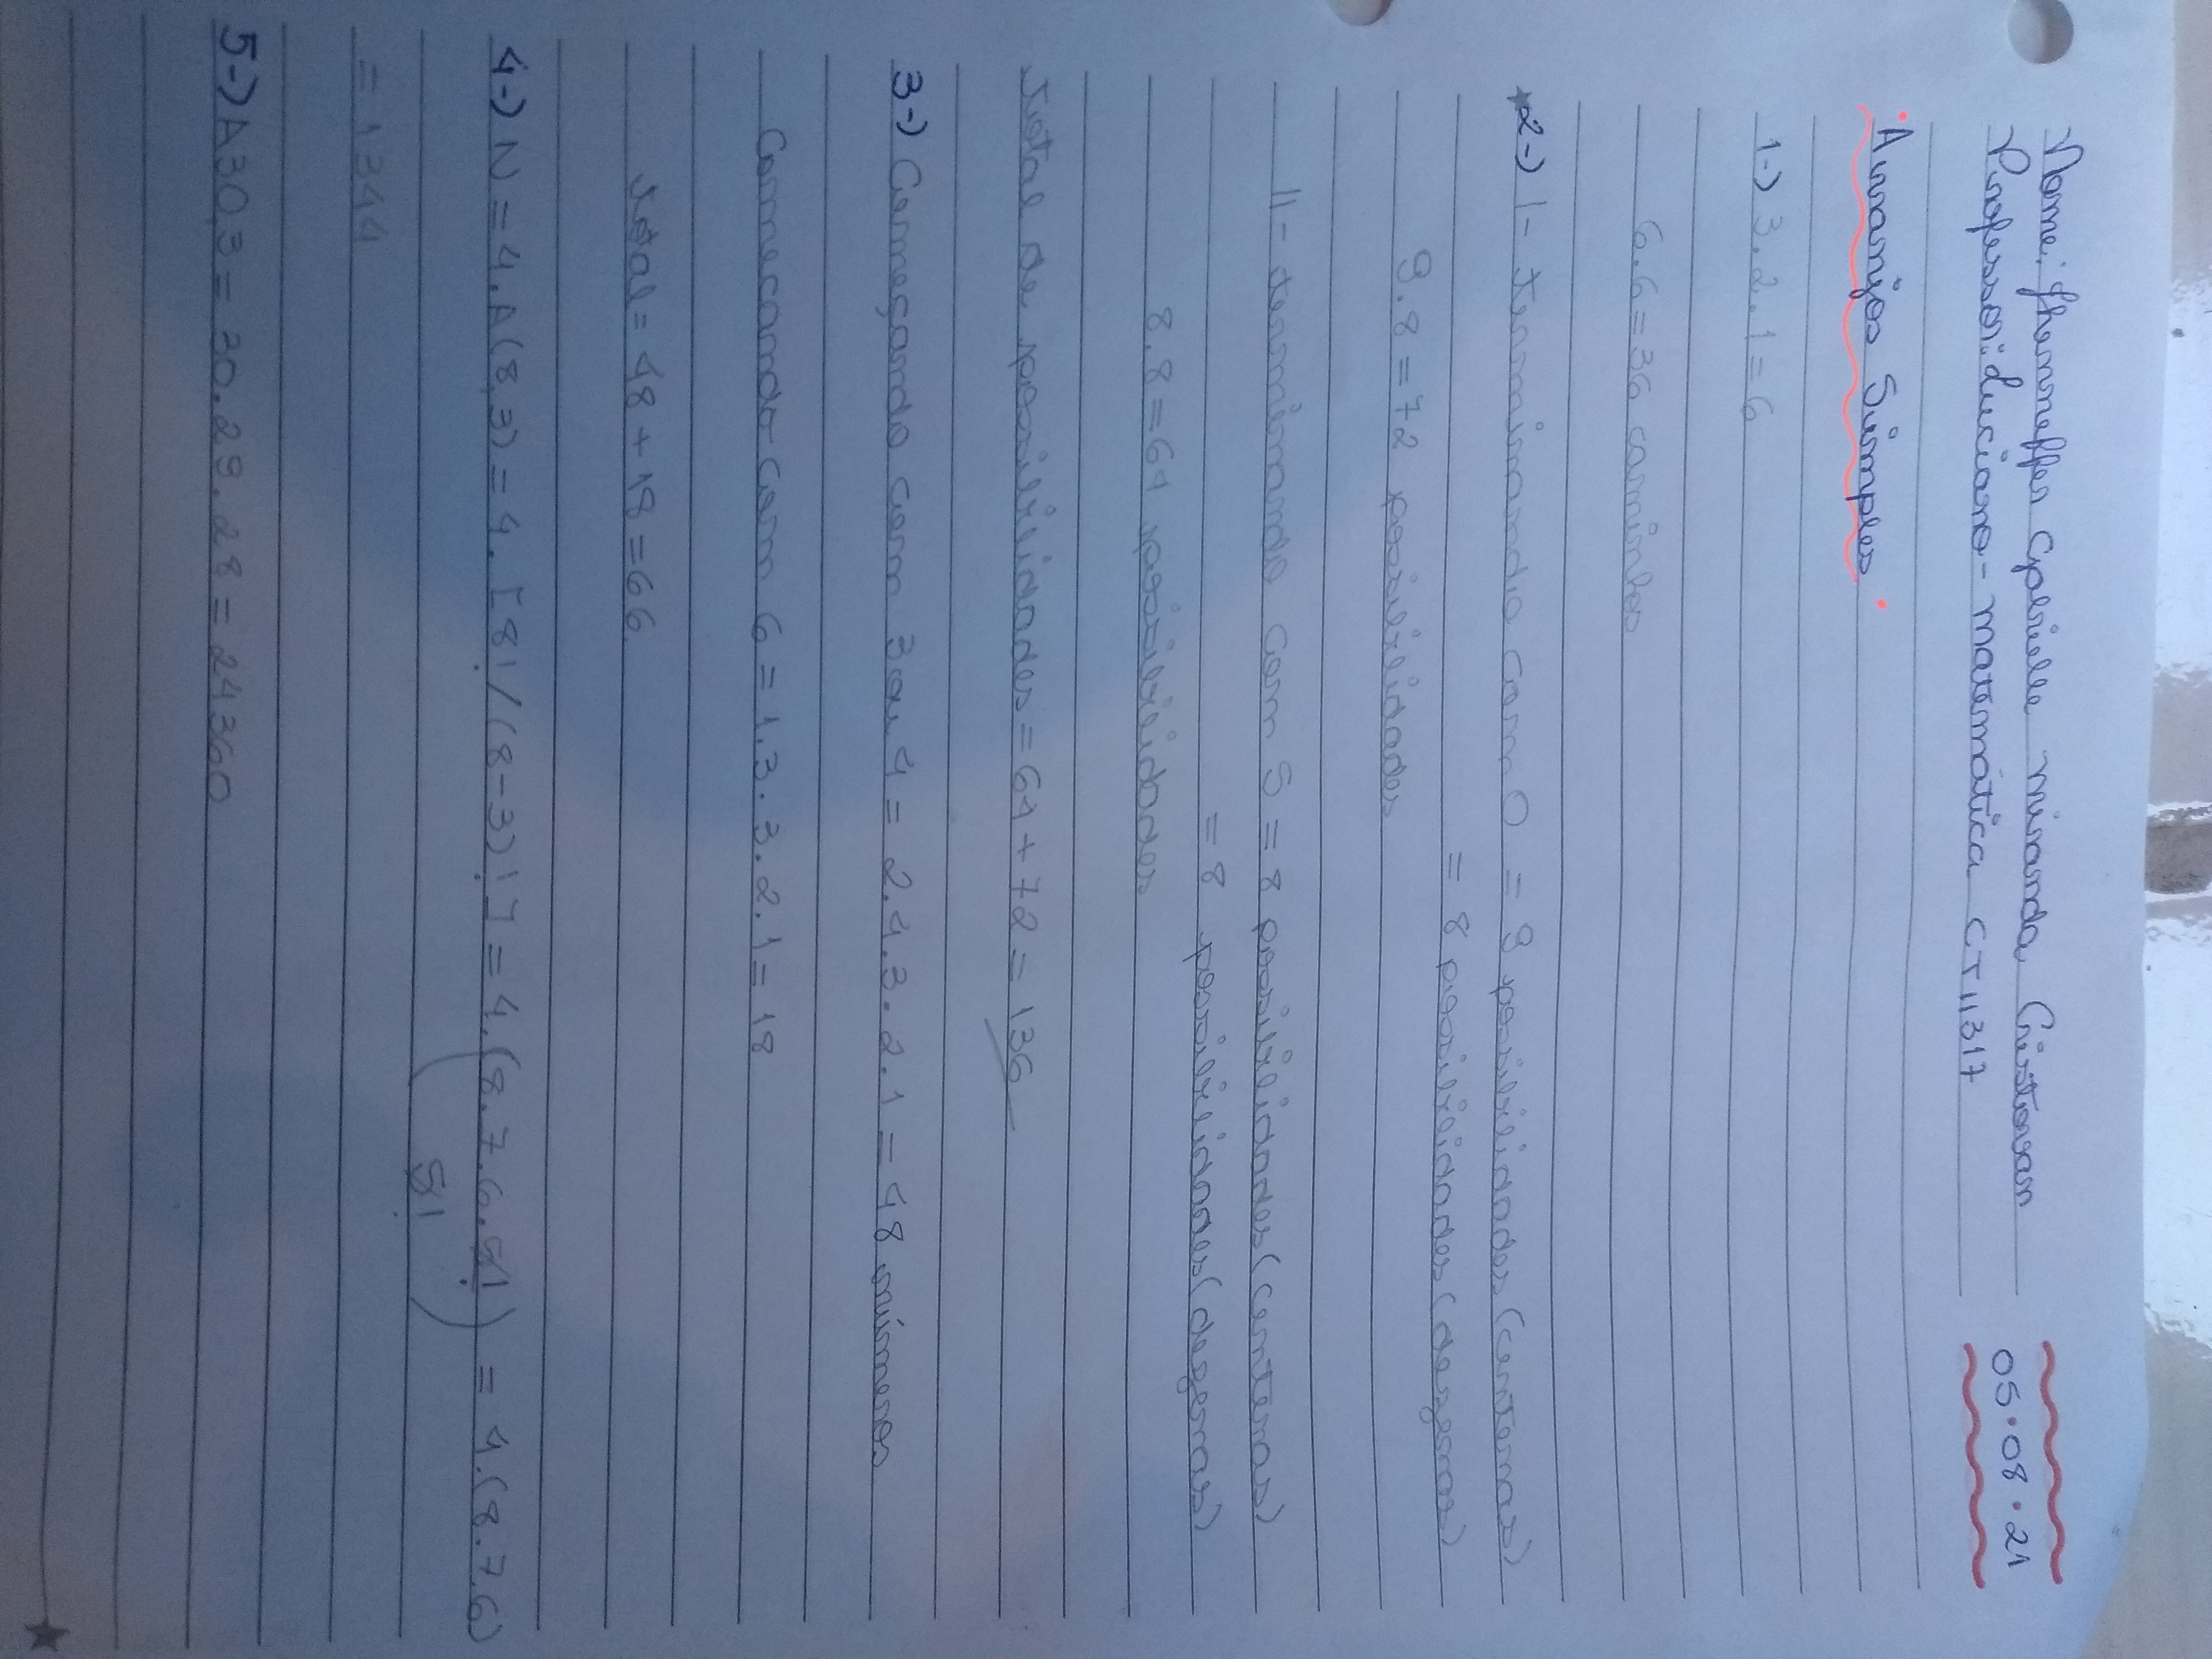 Nome: Jhenneffer Gabrielle Miranda Cristovan
05.08.21
Professor: Luciano - matemática CTII317
Arranjos Simples
1-) 3.2.1=6
6.6=36 caminhos
2-) I- terminando com 0 = 9 possibilidades (centenas)
= 8 possibilidades (dezenas)
9.8=72 possibilidades
II- terminando com 5 = 8 possibilidades (centenas)
= 8 possibilidades (dezenas)
8.8=64 possibilidades
total de possibilidades = 64+72=136
3-) Começando com 3 ou 4 = 2.4.3.2.1 = 48 números
Comecando com 6 = 1.3.3.2.1=18
total= 48+18=66
4-) N = 4.A(8,3) = 4.[8!/(8-3)!] = 4.(8.7.6.5!/5!) = 4.(8.7.6)
= 1344
5-) A30,3 = 30.29.28 = 24360